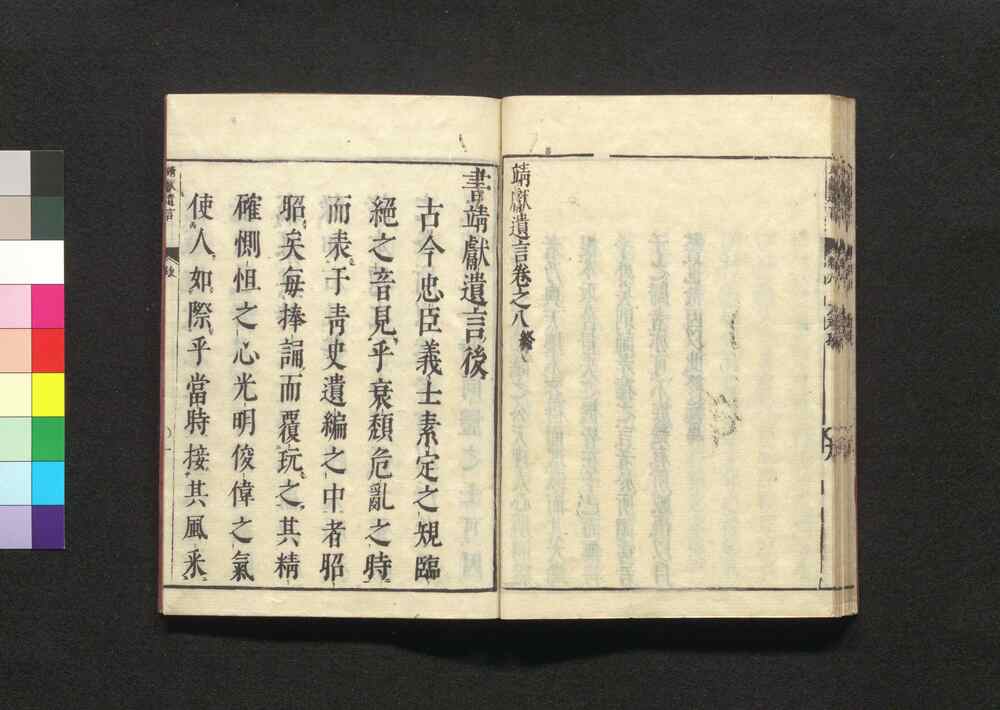 靖獻遺言卷之八終
書靖獻遺言後
古今忠臣義士素定之規臨
絕之音見乎衰頹危亂之時
而表于青史遺編之中者昭
昭矣每捧誦而覆玩之其精
確惻怛之心光明俊偉之氣
使人如際乎當時接其風采
靖獻遺言
後